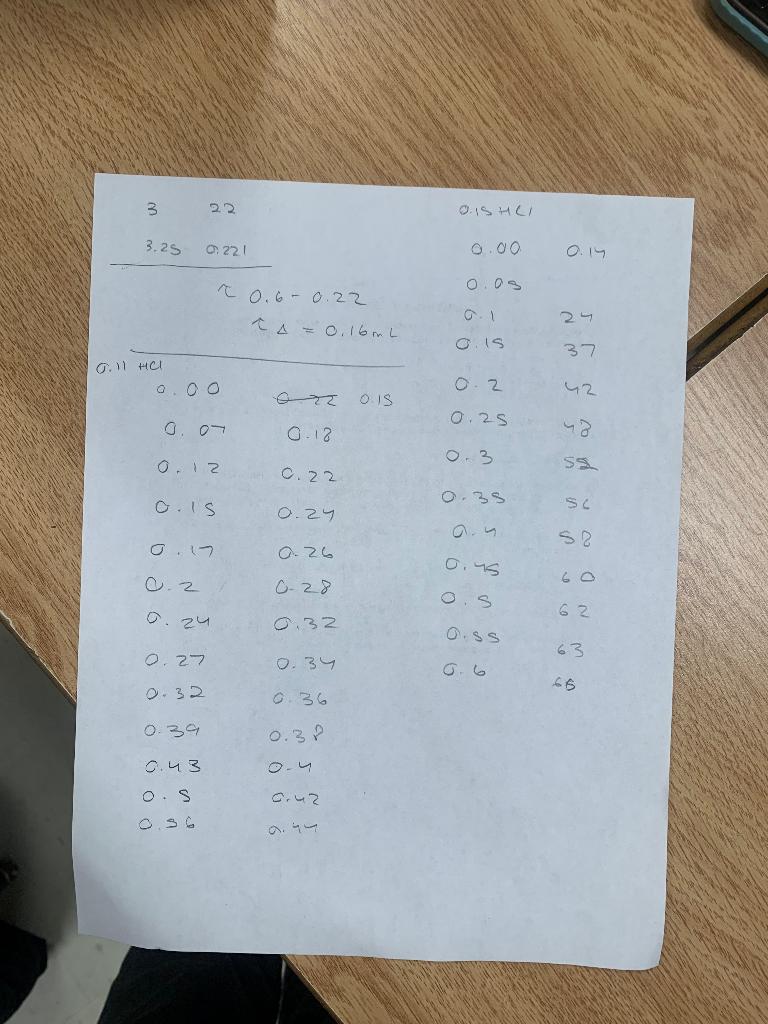 3 22
3.25 0.221
τ 0.6 - 0.22
τ Δ = 0.16mL
0.11 HCl
0.00 0.22 0.15
0.07 0.18
0.12 0.22
0.15 0.24
0.17 0.26
0.2 0.28
0.24 0.32
0.27 0.34
0.32 0.36
0.39 0.38
0.43 0.4
0.5 0.42
0.56 0.44
0.15 HCl
0.00 0.14
0.05
0.1 24
0.15 37
0.2 42
0.25 48
0.3 52
0.35 56
0.4 58
0.45 60
0.5 62
0.55 63
0.6 65